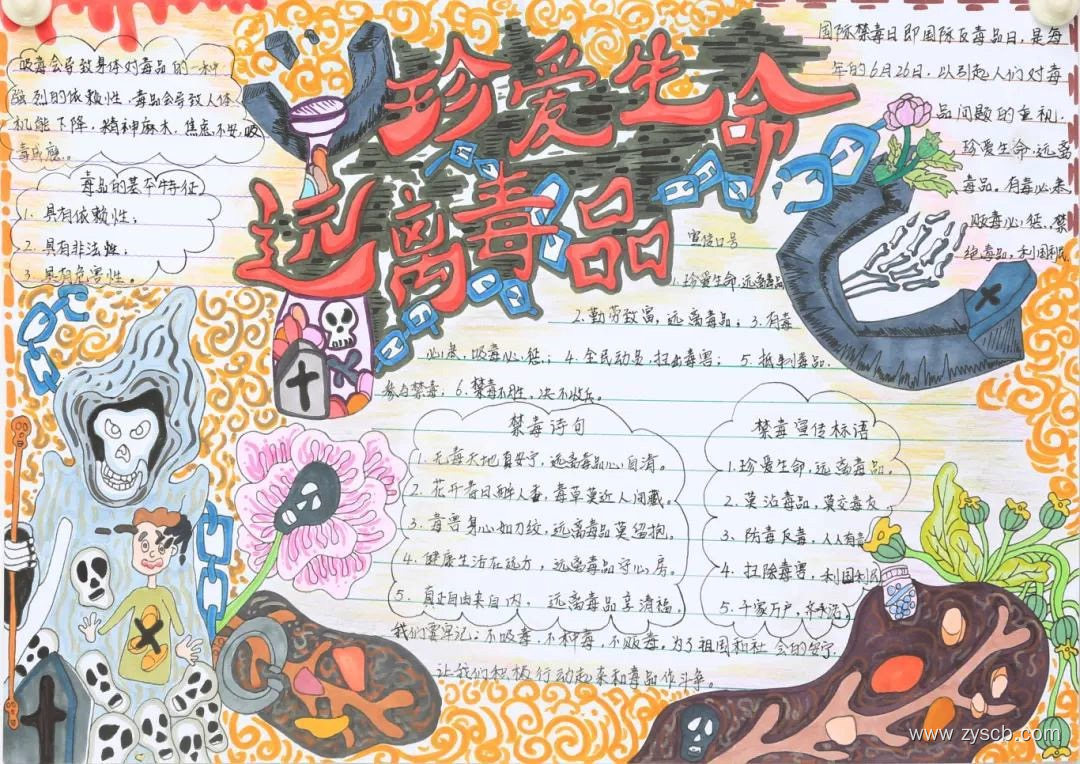 珍爱生命
远离毒品
吸毒会导致身体对毒品的一种
强烈的依赖性,毒品会导致人体
机能下降,精神麻木,焦虑不安,吸
毒成瘾。
毒品的基本特征
1. 具有依赖性;
2. 具有非法性;
3. 具有危害性。
国际禁毒日即国际反毒品日,是每
年的6月26日,以引起人们对毒
品问题的重视.
珍爱生命,远离
毒品。有毒必肃,
贩毒必惩,禁
绝毒品,利国利民
宣传口号
1.珍爱生命,远离毒品
2.勤劳致富,远离毒品;3.有毒
必肃,吸毒必惩;4.全民动员,扫出毒害;5.抵制毒品.
参与禁毒,6.禁毒不胜,决不收兵。
禁毒诗句
1. 无毒天地真安宁,远离毒品心自清。
2. 花开春日醉人香,毒草莫近人闲藏。
3. 毒害身心如刀绞,远离毒品莫留抱。
4. 健康生活在远方,远离毒品守心房。
5. 真正自由来自内,远离毒品享清福。
禁毒宣传标语
1. 珍爱生命,远离毒品。
2. 莫沾毒品,莫交毒友
3. 防毒反毒,人人有责
4. 扫除毒害,利国利民
5. 千家万户,
我们要牢记:不吸毒,不种毒,不贩毒。为了祖国和社会的安宁
让我们积极行动起来和毒品作斗争。
www.zyscb.com